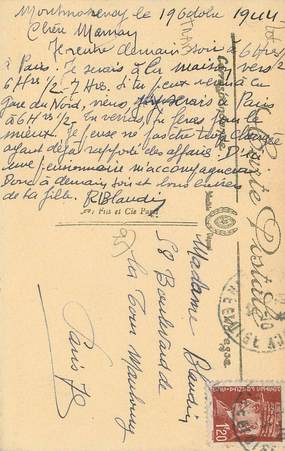 Montmorency le 19 Octobre 1944
Chère Maman
Je rentre demain soir à 6 Hres 1/2
à Paris. Je serais à la maison vers
6 Hrs 1/2 - 7 Hrs. Si tu peux venir à la
gare du Nord, viens, je serais à Paris
à 6 Hrs 1/2. En venas, tu feras pour le
mieux. Je pense ne pas être trop chargée
ayant déjà rapporté des affaires. D'
une pensionnaire m'accompagnera
Donc à demain soir et bons baisers
de ta fille. R. Blaudin
Fils et Cie Paris
Carte Postale
Correspondance
Adresse
Madame Blaudin
58 Boulevard de
La Tour Maubourg
Paris 7e
1.20